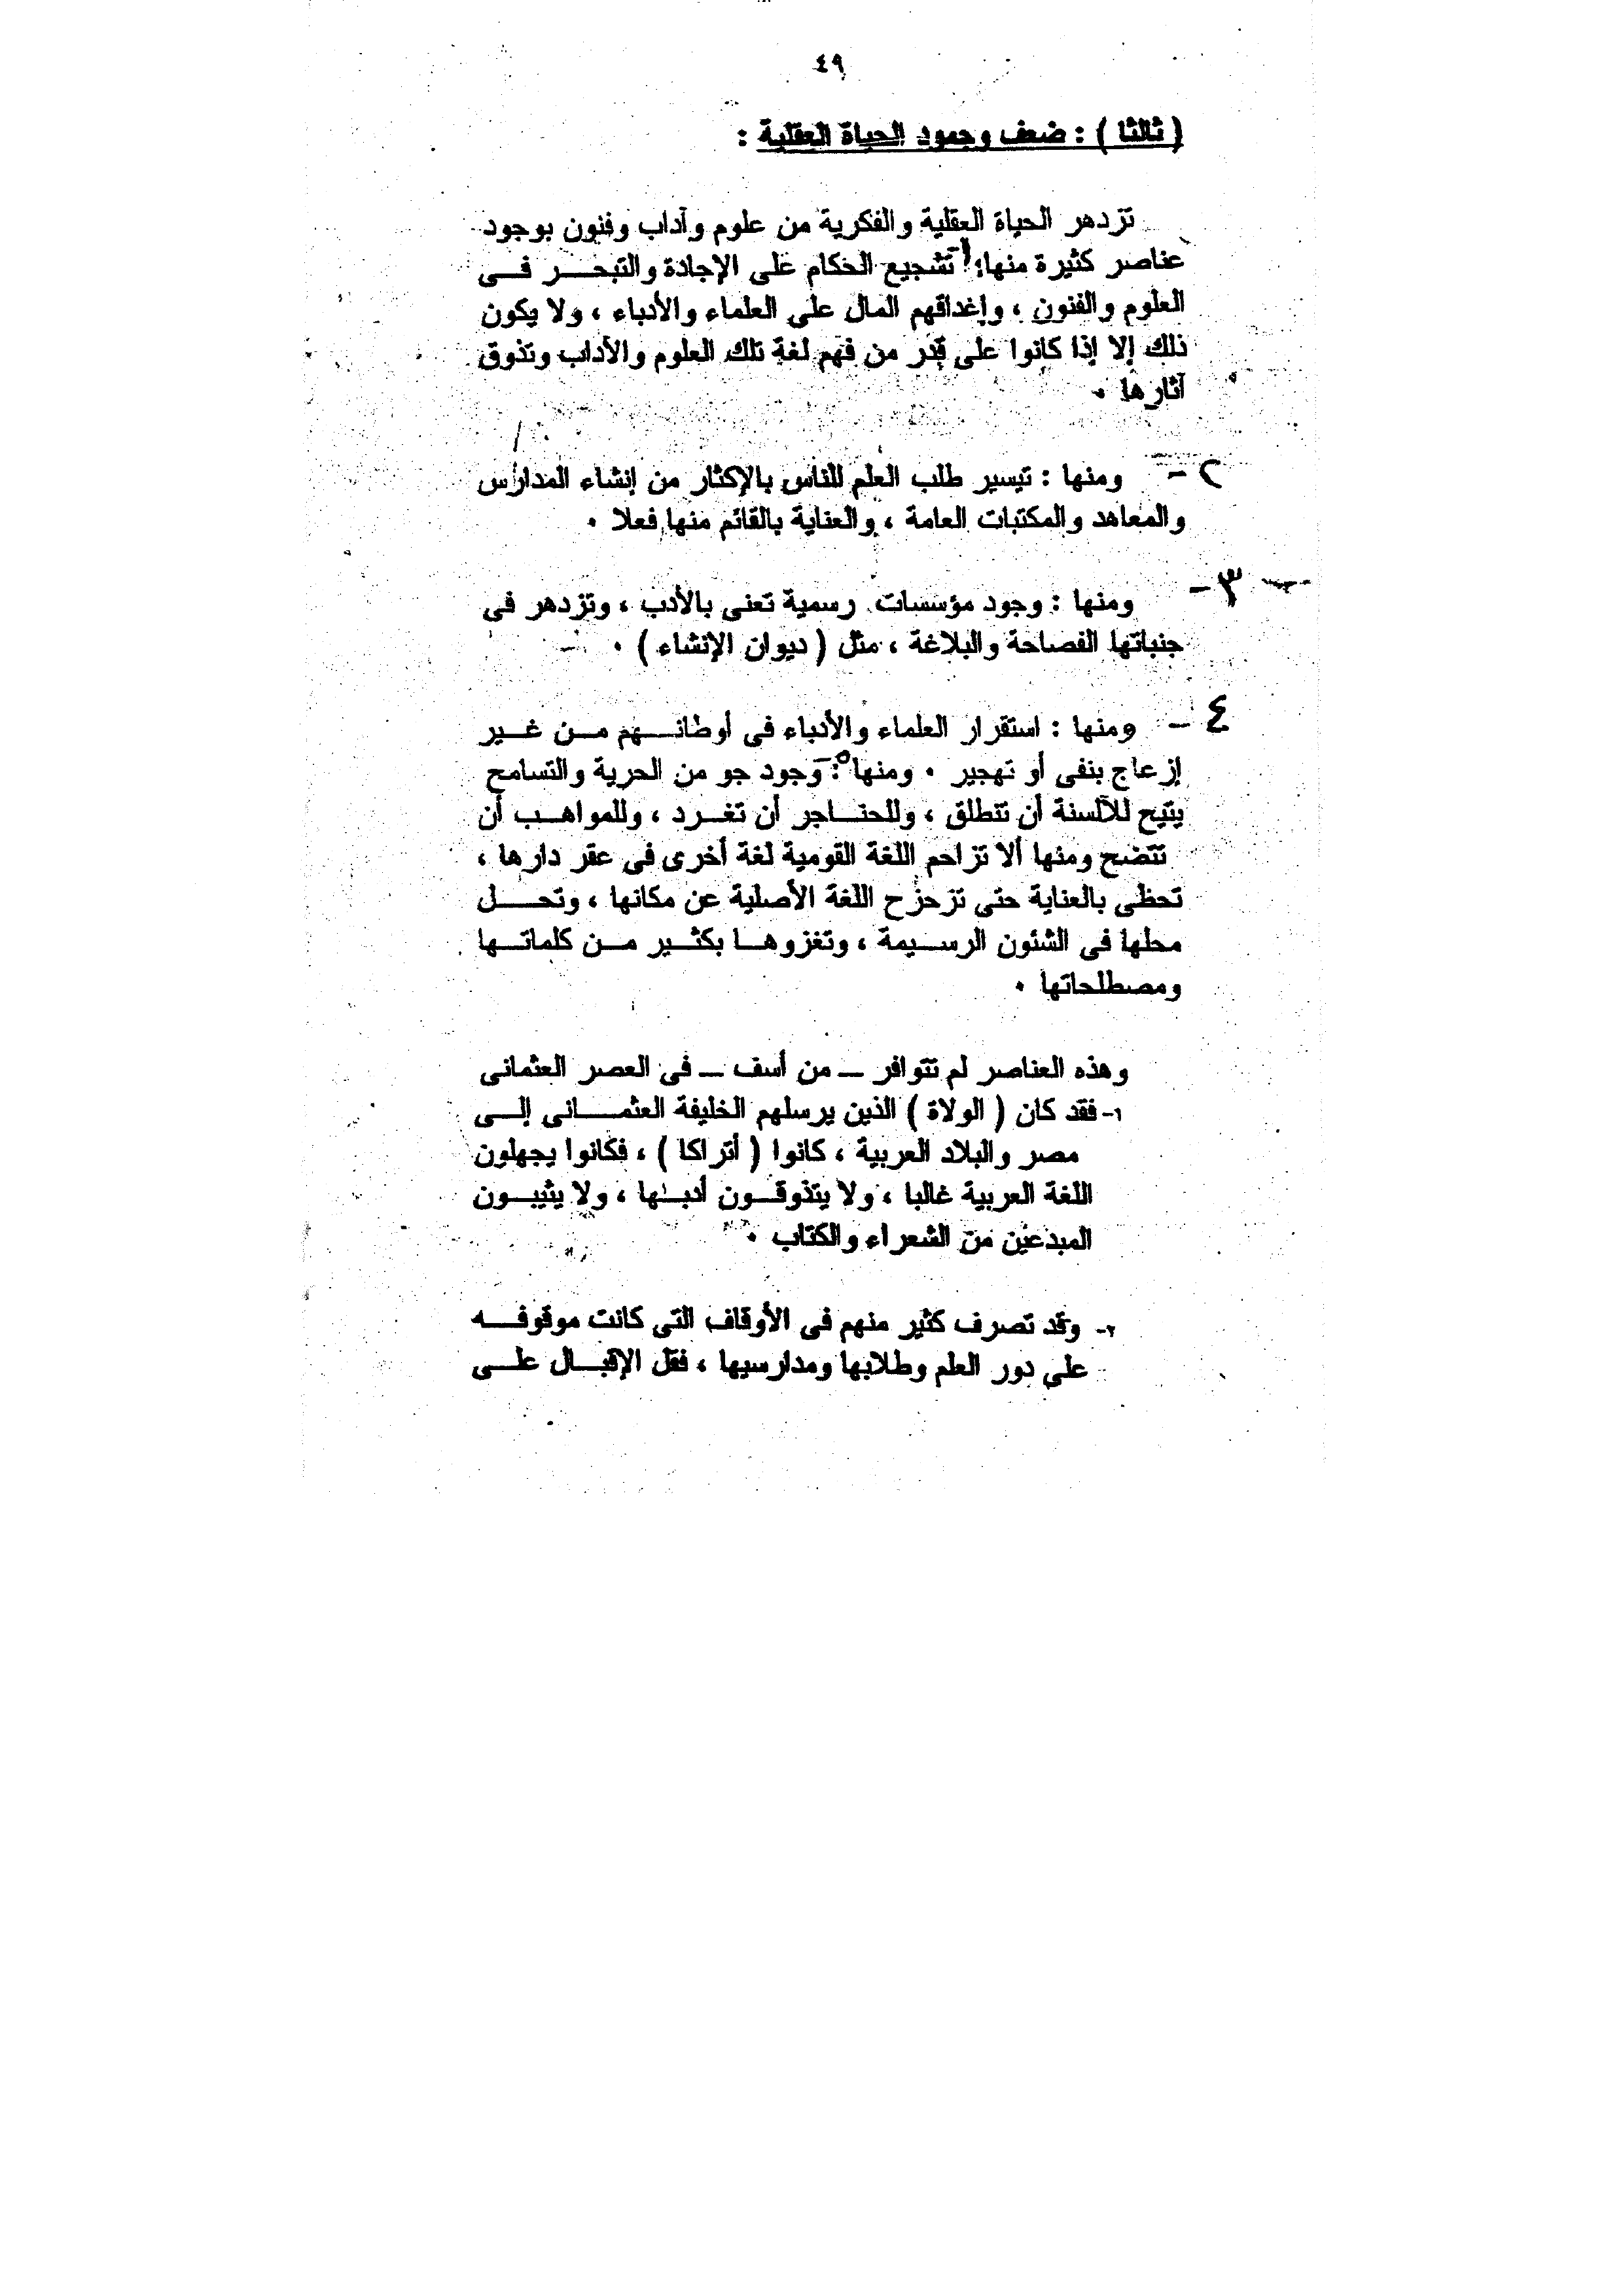 ٤٩
( ثالثا ) : ضعف وجمود الحياة العقلية :
تزدهر الحياة العقلية والفكرية من علوم وآداب وفنون بوجود
عناصر كثيرة منها: ١- تشجيع الحكام على الإجادة والتبحـــر فــى
العلوم والفنون ، وإغداقهم المال على العلماء والأدباء ، ولا يكون
ذلك إلا إذا كانوا على قدر من فهم لغة تلك العلوم والآداب وتذوق
آثارها ٠
٢ - ومنها : تيسير طلب العلم للناس بالإكثار من إنشاء المدارس
والمعاهد والمكتبات العامة ، والعناية بالقائم منها فعلا ٠
٣ - ومنها : وجود مؤسسات رسمية تعنى بالأدب ، وتزدهر فى
جنباتها الفصاحة والبلاغة ، مثل ( ديوان الإنشاء ) ٠
٤ - ومنها : استقرار العلماء والأدباء فى أوطانـــهم مــن غــير
إزعاج بنفى أو تهجير ٠ ومنها ٥- : وجود جو من الحرية والتسامح
يتيح للألسنة أن تنطلق ، وللحنــاجر أن تغــرد ، وللمواهــب أن
تتضح ومنها ألا تزاحم اللغة القومية لغة أخرى فى عقر دارها ،
تحظى بالعناية حتى تزحزح اللغة الأصلية عن مكانها ، وتحـــل
محلها فى الشئون الرســيمة ، وتغزوهــا بكثــير مــن كلماتــها
ومصطلحاتها ٠
وهذه العناصر لم تتوافر ــ من أسف ــ فى العصر العثمانى
١- فقد كان ( الولاة ) الذين يرسلهم الخليفة العثمـــانى إلــى
مصر والبلاد العربية ، كانوا ( أتراكا ) ، فكانوا يجهلون
اللغة العربية غالبا ، ولا يتذوقــون أدبــها ، ولا يثيبــون
المبدعين من الشعراء والكتاب ٠
٢- وقد تصرف كثير منهم فى الأوقاف التى كانت موقوفــه
على دور العلم وطلابها ومدارسيها ، فقل الإقبــال علــى